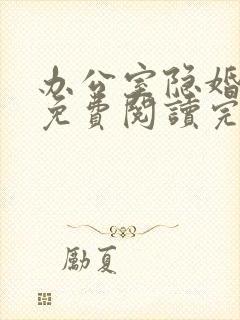 办公室隐婚
免費閱讀完
勵夏